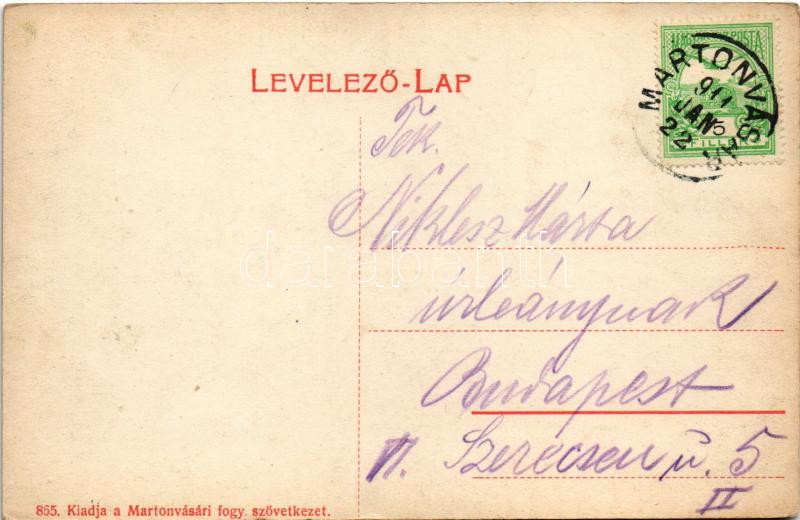 LEVELEZŐ-LAP
MARTONVÁSÁR
JAN
22
5
FILLÉR
Tek.
Niklesz Márta
úrleánynak
Budapest
VI. Szerecsen u. 5
II
865. Kiadja a Martonvásári fogy. szövetkezet.
darabanth